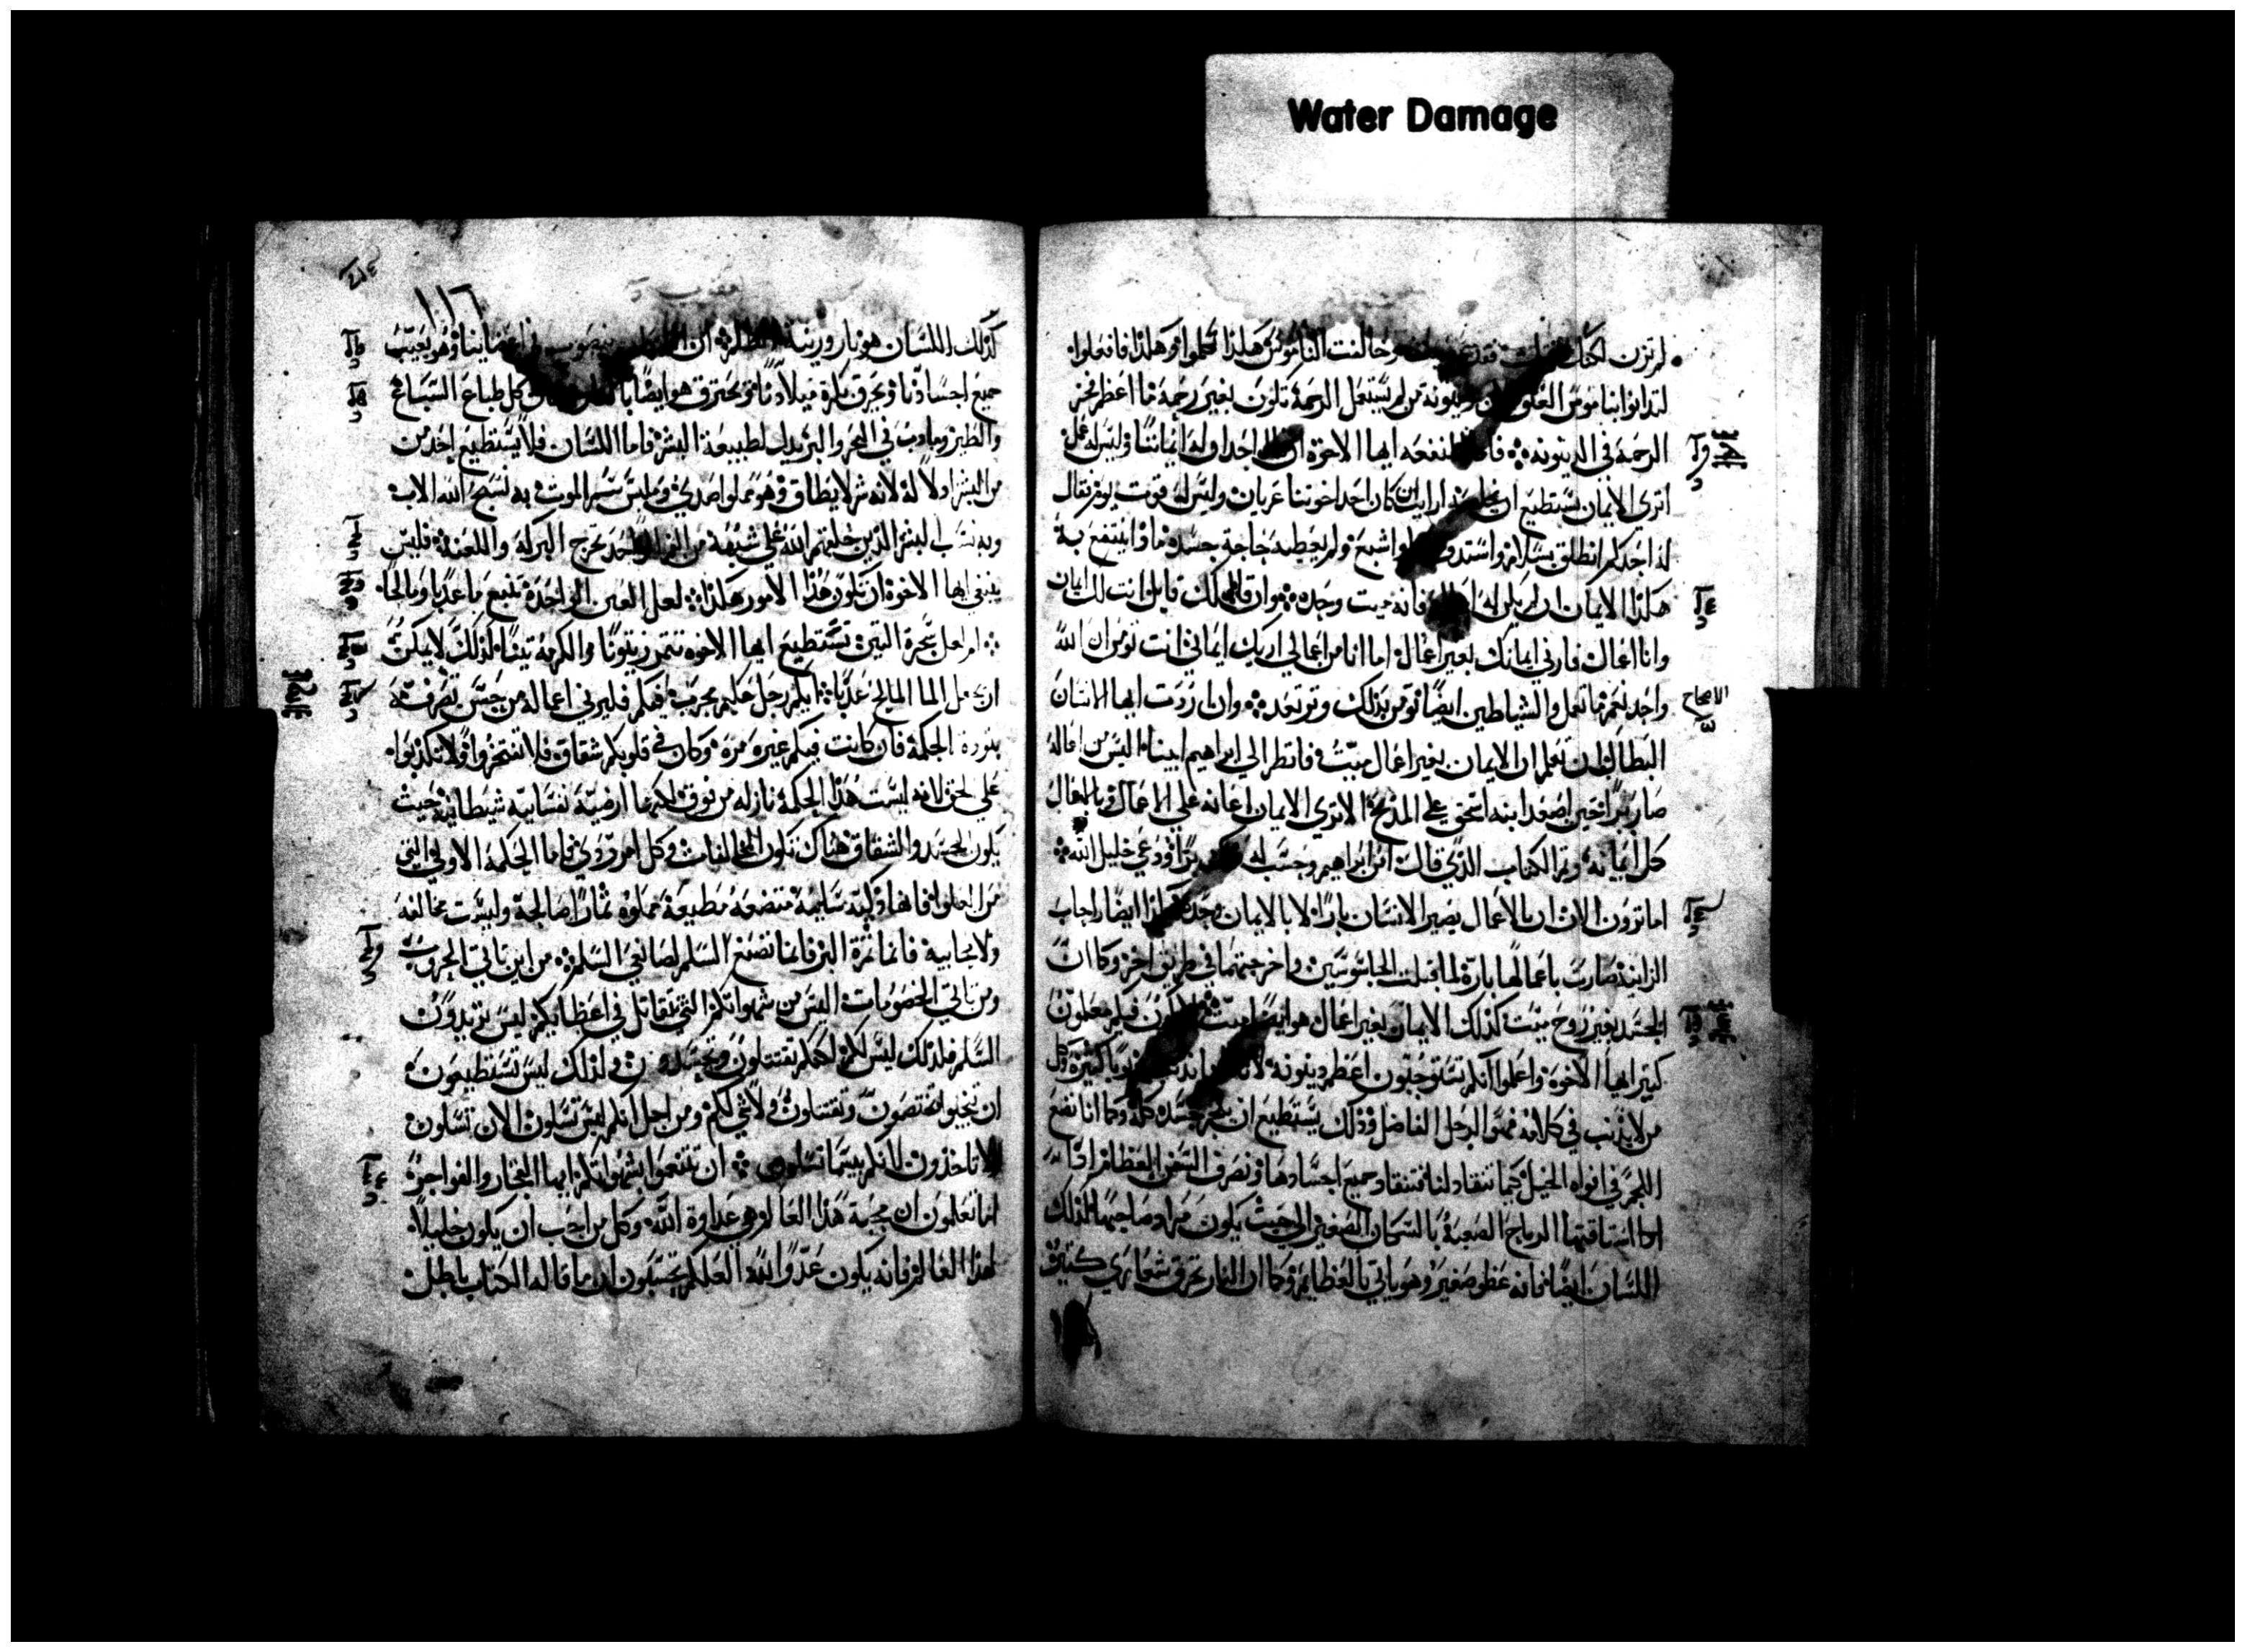 Water Damage
لم تزن لكنك قتلت فقد وخالفت الناموس هكذا تكلموا وهكذا فافعلوا
لتدانوا بناموس العتق لان دينونة من لم يستعمل الرحمة تكون بغير رحمة ما اعظم فخر
الرحمة في الدينونه فما المنفعه ايها الاخوة ان قال احد ان له ايمانا وليس له عمل
اترى الايمان يستطيع ان يخلصه ارايت ان كان احد اخوتنا عريان وليس له قوت يوم فقال
له احدكم انطلق بسلام واستدف واشبع ولم يعطيه حاجة جسده ماذا ينتفع به
هكذا الايمان ان لم يكن له اعمال فانه ميت وحده وان قال لك قايل انت لك ايمان
وانا اعمال فارني ايمانك بغير اعمال اما انا من اعمالي اريك ايماني انت تومن ان الله
واحد نعم ما تعمل والشياطين ايضا تومن بذلك وترتعد وان اردت ايها الانسان
الاصحاح
البطال ان تعلم ان الايمان بغير اعمال ميت فانظر الي ابراهيم ابينا اليس من اعماله
صار برا حين اصعد ابنه اسحق علي المذبح الا ترى الايمان اعانه علي الاعمال وبالاعمال
كمل ايمانه وتم الكتاب الذي قال امن ابراهيم وحسب له برا ودعي خليل الله
اما ترون الان ان بالاعمال يصير الانسان بارا لا بالايمان وحده هكذا ايضا راحاب
الزانية صارت باعمالها بارة لما قبلت الجاسوسين واخرجتهما في طريق اخر وكما ان
الجسد بغير روح ميت كذلك الايمان بغير اعمال هو ايضا ميت لا يكون فيكم معلمون
كثير ايها الاخوة واعلموا انكم تستوجبون اعظم دينونة لاننا نذنب ذنوبا كثيرة وكل
من لا يذنب في كلامه فهو الرجل الفاضل وذلك يستطيع ان يلجم جسده كله وكما انا نضع
اللجم في افواه الخيل كيما تنقاد لنا فتنقاد وجميع اجسادها ونصرف السفن العظام اذا
استاقتها الرياح الصعبة بالسكان الصغير الي حيث يكون مراد صاحبها كذلك
اللسان ايضا فانه عظو صغير وهو ياتي بالعظايم وكما ان النار تحرق شعاري كثيرة
١١٦
كذلك اللسان هو نار وزينة الظلم ان اللسان منصوب في اعضاينا وهو يعيب
جميع اجسادنا ويحرق بكرة ميلادنا ويحترق هو ايضا بالنار وكل طباع السباع
والطير وما دب في البحر والبر يذل لطبيعة البشر فاما اللسان فلا يستطيع احد من
من البشر اذلاله لانه شر لا يطاق وهو مملوا صدي وملبس سم الموت به نسبح الله الاب
وبه نسب البشر الذين خلقهم الله علي شبهه من الفم الواحد تخرج البركة واللعنة فليس
ينبغي ايها الاخوة ان تكون هذه الامور هكذا لعل العين الواحدة تنبع ماءً عذبا ومالحا
ام لعل شجرة التين تستطيع ايها الاخوة تثمر زيتونا والكرمة تينا لذلك لا يمكن
ان يجعل الما المالح عذبا ايكم رجل حكيم مجرب فيكم فليرني اعماله من حسن تصرفه
بتودة الحكمة فان كانت فيكم غيره مرة وكان في قلوبكم شقاق فلا تفتخروا ولا تكذبوا
علي الحق لانه ليست هذه الحكمة نازله من فوق لكنها ارضية نفسانية شيطانية حيث
يكون الحسد والشقاق هناك تكون المخالفات وكل امر ردي فاما الحكمة الاولي التي
من العلو فانها زكية سليمة متضعة مطيعة مملوة ثمارا صالحة وليست مخالفه
ولا محابيه فانما ثمرة البر فانما تصنع السلم لصانعي السلم من اين تاتي الحروب
ومن تاتي الخصومات اليس من شهواتكم التي تقاتل في اعظايكم ليس تريدون
السلم فلذلك ليس لكم لعلكم تقتتلون وتحسدون ولذلك ليس تستطيعون
ان تنجوا تختصمون وتقتتلون ولا شي لكم ومن اجل انكم ليس تسلون الان تسلون
لا تاخذون لانكم بيسما تسلون ان تتنعموا بشهواتكم ايها الفجار والفواجر
اما تعلمون ان محبة هذا العالم هي عداوة الله وكل من احب ان يكون خليلا
لهذا العالم فانه يكون عدوا لله العلكم تحسبون ان ما قاله الكتاب باطل